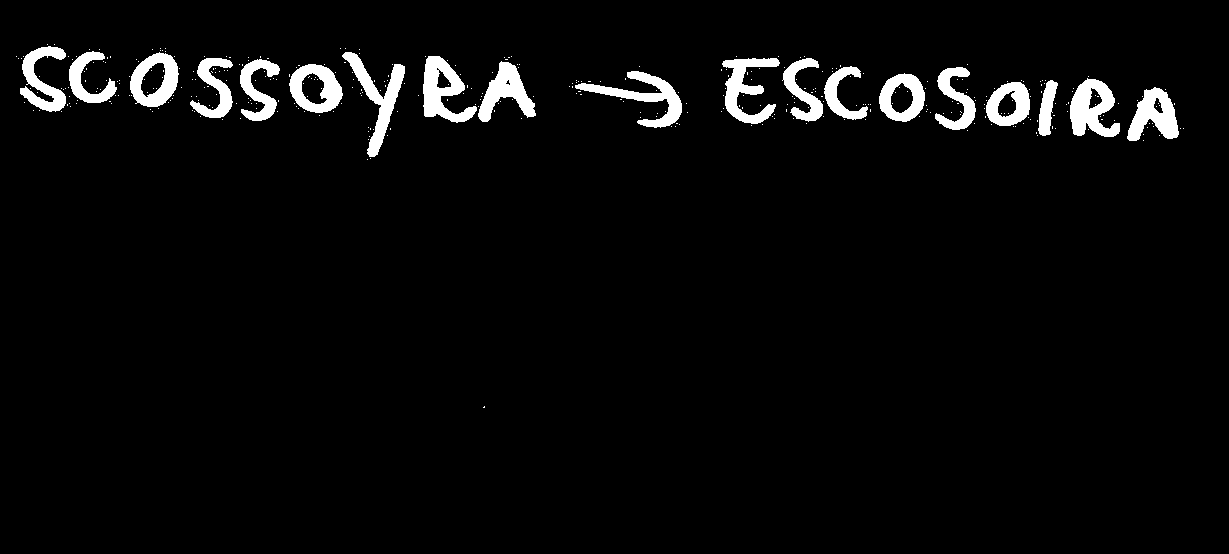 SCOSSOYRA → ESCOSOIRA